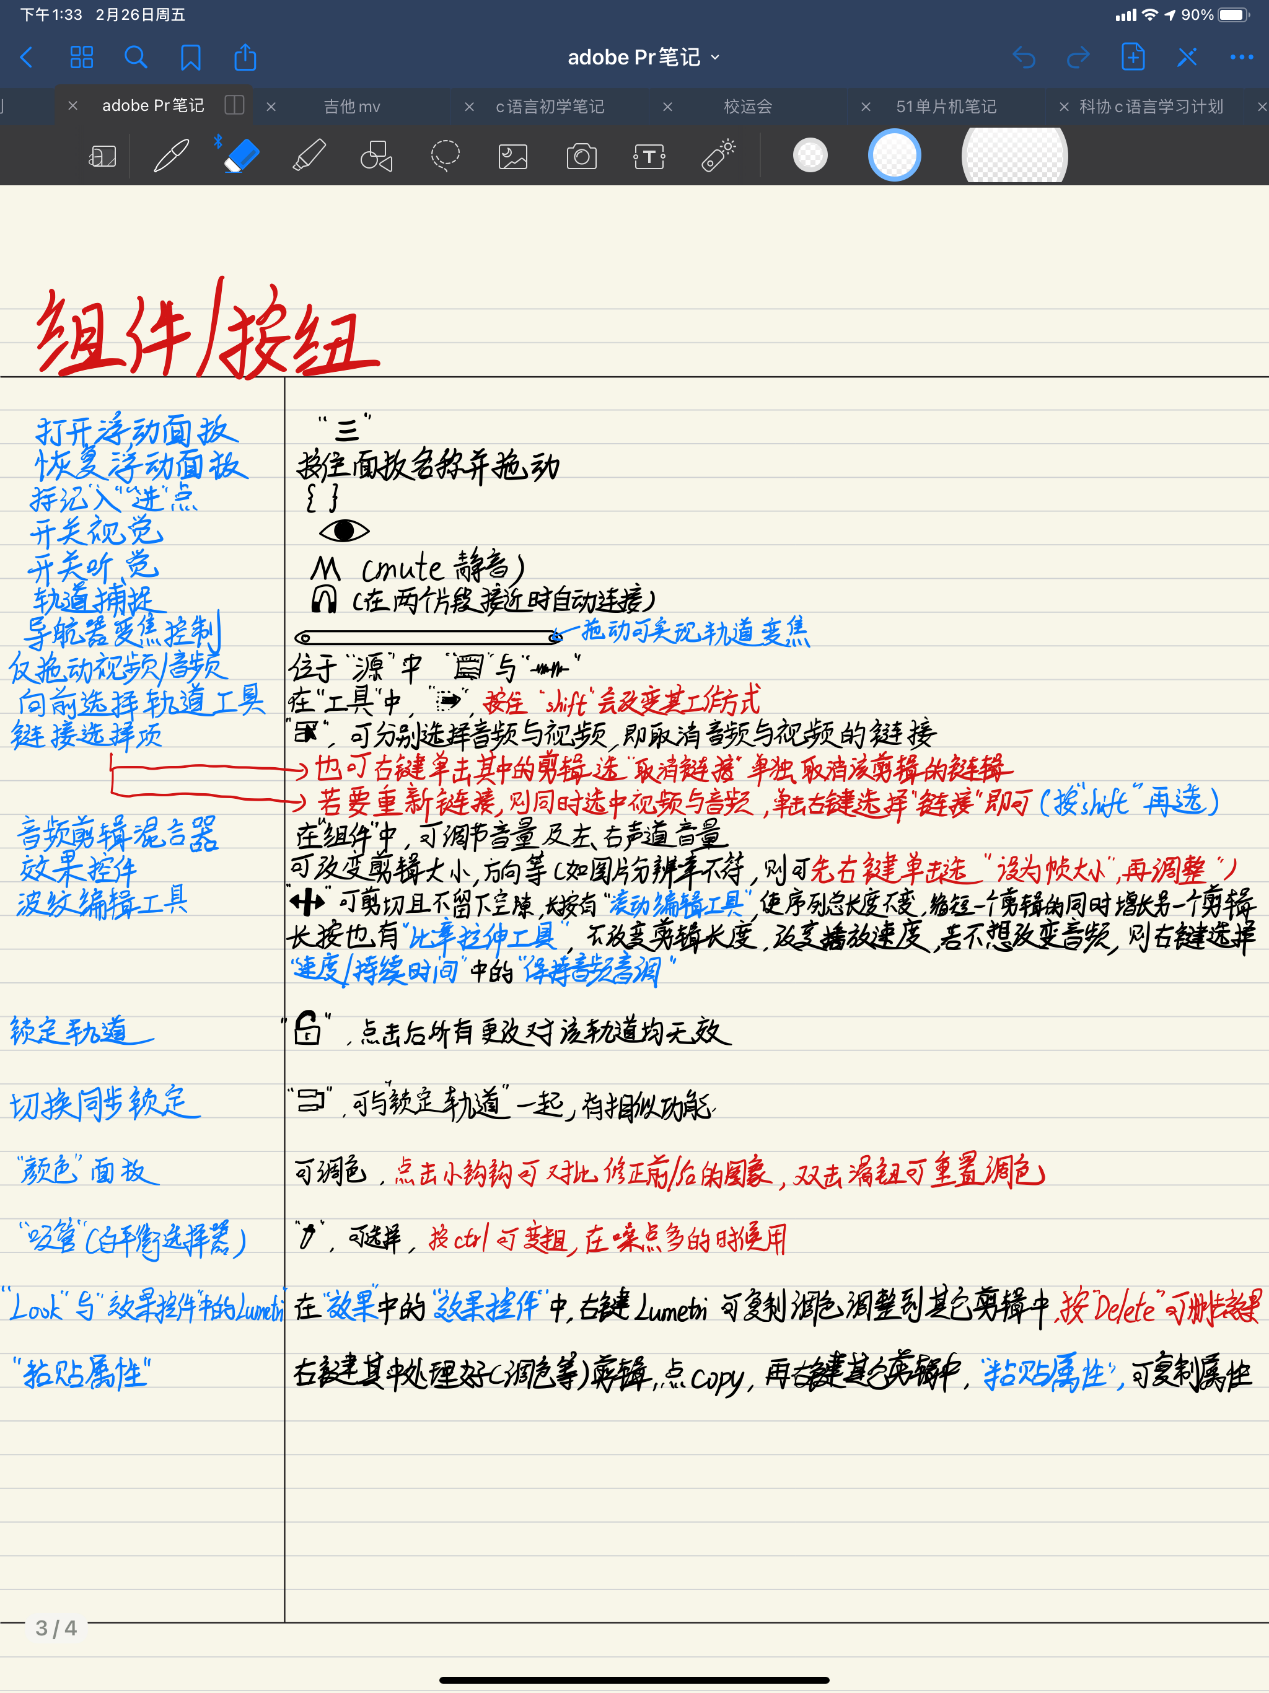 下午1:33 2月26日周五
90%
adobe Pr笔记
adobe Pr笔记 吉他mv c语言初学笔记 校运会 51单片机笔记 科协c语言学习计划
组件/按钮
打开浮动面板 “三”
恢复浮动面板 按住面板名称并拖动
标记“入”“进”点 { }
开关视觉
开关听觉 M (mute 静音)
轨道捕捉 (在两个片段接近时自动连接)
导航器变焦控制 拖动可实现轨道变焦
仅拖动视频/音频 位于“源”中“ ”与“ ”
向前选择轨道工具 在“工具”中,“ ”,按住“shift”会改变其工作方式
链接选择项 “ ”,可分别选择音频与视频,即取消音频与视频的链接
也可右键单击其中的剪辑选“取消链接”单独取消该剪辑的链辑
若要重新链接,则同时选中视频与音频,单击右键选择“链接”即可(按“shift”再选)
音频剪辑混合器 在“组件”中,可调节音量及左、右声道音量
效果控件 可改变剪辑大小,方向等(如图片分辨率不符,则可先右键单击选“设为帧大小”,再调整”)
波纹编辑工具 “ ”可剪切且不留下空隙,长按有“滚动编辑工具”,使序列总长度不变,缩短一个剪辑的同时增长另一个剪辑
长按也有“比率拉伸工具”,不改变剪辑长度,改变播放速度,若不想改变音频,则右键选择
“速度/持续时间”中的“保持音频音调”
锁定轨道 “ ”,点击后所有更改对该轨道均无效
切换同步锁定 “ ”,可与“锁定轨道”一起,有相似功能.
“颜色”面板 可调色,点击小钩钩可对比修正前/后的图象,双击滑钮可重置调色
“吸管”(白平衡选择器) “ ”,可选择,按ctrl可变粗,在噪点多的时候用
“Look”与“效果控件”中的Lumetri 在“效果”中的“效果控件”中,右键Lumetri可复制调色调整到其它剪辑中,按“Delete”可删去效果
“粘贴属性” 右键其中处理好(调色等)剪辑,点copy,再右键其它剪辑中,“粘贴属性”,可复制属性
3/4